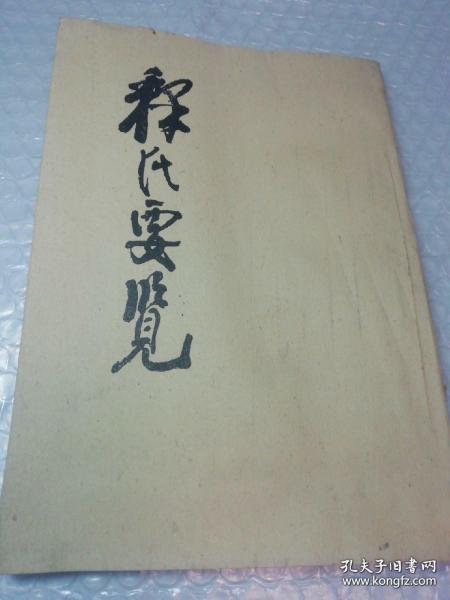 释氏要覧
孔夫子旧书网
www.kongfz.com